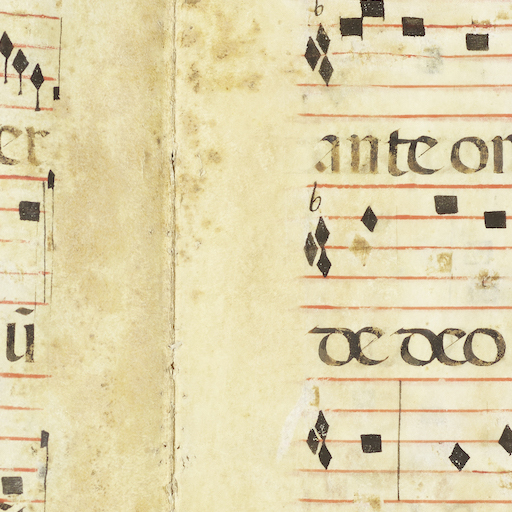 er
ū
ante on
de deo